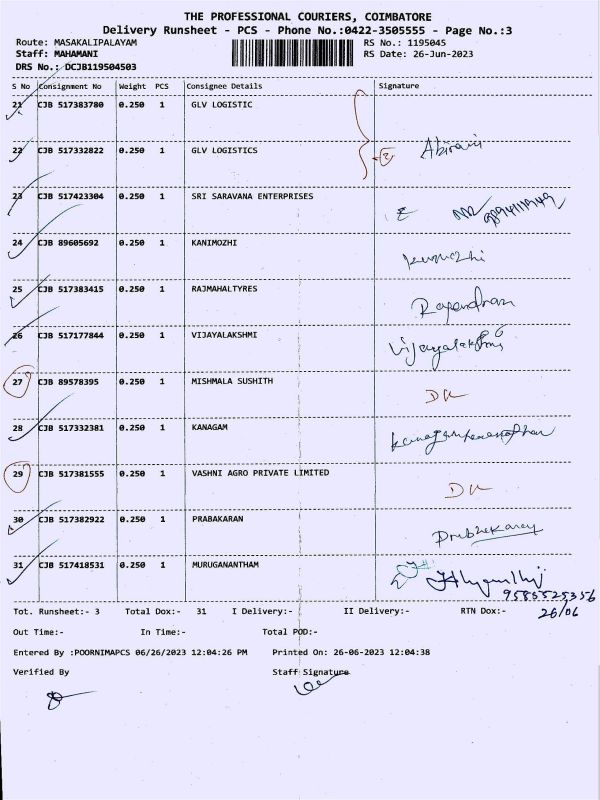 THE PROFESSIONAL COURIERS, COIMBATORE
Delivery Runsheet - PCS - Phone No.:0422-3505555 - Page No.:3
Route: MASAKALIPALAYAM RS No.: 1195045
Staff: MAHAMANI RS Date: 26-Jun-2023
DRS No.: DCJB119504503
S No Consignment No Weight PCS Consignee Details Signature
21 CJB 517383780 0.250 1 GLV LOGISTIC
22 CJB 517332822 0.250 1 GLV LOGISTICS 2 Abirami
23 CJB 517423304 0.250 1 SRI SARAVANA ENTERPRISES
24 CJB 89605692 0.250 1 KANIMOZHI
25 CJB 517383415 0.250 1 RAJMAHALTYRES Rajendran
26 CJB 517177844 0.250 1 VIJAYALAKSHMI Vijayalakshmi
27 CJB 89578395 0.250 1 MISHMALA SUSHITH DL
28 CJB 517332381 0.250 1 KANAGAM
29 CJB 517381555 0.250 1 VASHNI AGRO PRIVATE LIMITED DL
30 CJB 517382922 0.250 1 PRABAKARAN
31 CJB 517418531 0.250 1 MURUGANANTHAM
9585525356
Tot. Runsheet:- 3 Total Dox:- 31 I Delivery:- II Delivery:- RTN Dox:- 26/06
Out Time:- In Time:- Total POD:-
Entered By :POORNIMAPCS 06/26/2023 12:04:26 PM Printed On: 26-06-2023 12:04:38
Verified By Staff Signature